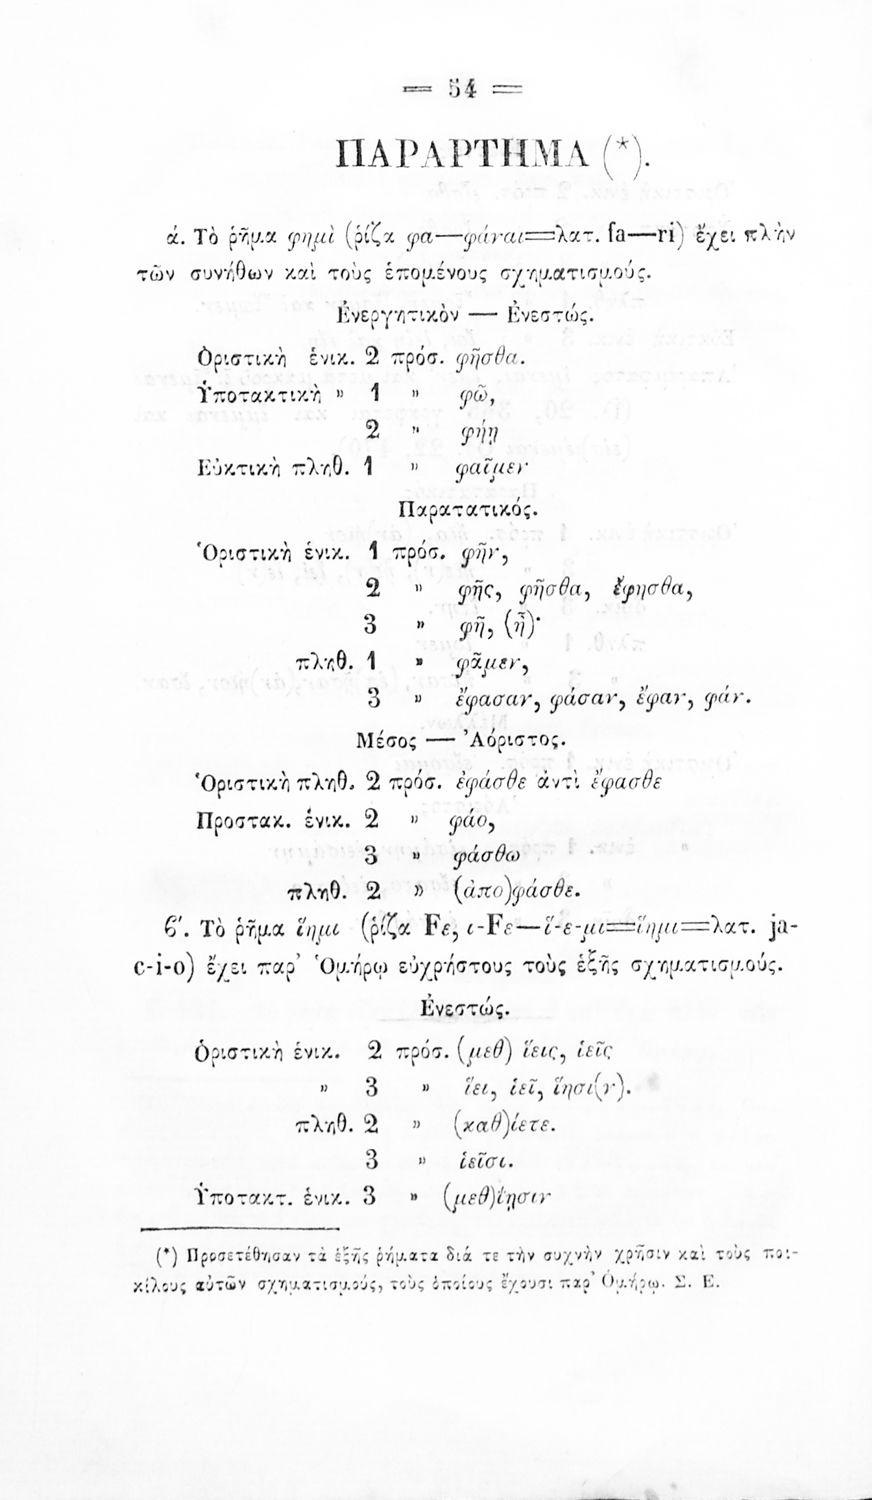 = 54 =
ΠΑΡΑΡΤΗΜΑ (*).
ά. Τὸ ῥῆμα φημὶ (ῥίζα φα—φάναι=λατ. fa—ri) ἔχει πλὴν
τῶν συνήθων καὶ τοὺς ἑπομένους σχηματισμούς.
Ἐνεργητικὸν — Ἐνεστώς.
Ὁριστικὴ ἑνικ. 2 πρόσ. φῆσθα.
Ὑποτακτικὴ » 1 » φῶ,
2 » φήῃ
Εὐκτικὴ πληθ. 1 » φαῖμεν
Παρατατικός.
Ὁριστικὴ ἑνικ. 1 πρόσ. φῆν,
2 » φῆς, φῆσθα, ἔφησθα,
3 » φῆ, (ἦ)·
πληθ. 1 » φᾶμεν,
3 » ἔφασαν, φάσαν, ἔφαν, φάν.
Μέσος — Ἀόριστος.
Ὁριστικὴ πληθ. 2 πρόσ. ἐφάσθε ἀντὶ ἔφασθε
Προστακ. ἑνικ. 2 » φάο,
3 » φάσθω
πληθ. 2 » (ἀπο)φάσθε.
ϐ'. Τὸ ῥῆμα ἵημι (ῥίζα Fε, ι-Fε—ἵ-ε-μι=ἵημι=λατ. ja-
c-i-o) ἔχει παρ' Ὁμήρῳ εὐχρήστους τοὺς ἑξῆς σχηματισμούς.
Ἐνεστώς.
Ὁριστικὴ ἑνικ. 2 πρόσ. (μεθ) ἵεις, ἱεῖς
» 3 » ἵει, ἱεῖ, ἵησι(ν).
πληθ. 2 » (καθ)ίετε.
3 » ἱεῖσι.
Ὑποτακτ. ἑνικ. 3 » (μεθ)ίησιν
(*) Προσετέθησαν τὰ ἑξῆς ῥήματα διά τε τὴν συχνὴν χρῆσιν καὶ τοὺς ποι-
κίλους αὐτῶν σχηματισμούς, τοὺς ὁποίους ἔχουσι παρ' Ὁμήρῳ. Σ. Ε.